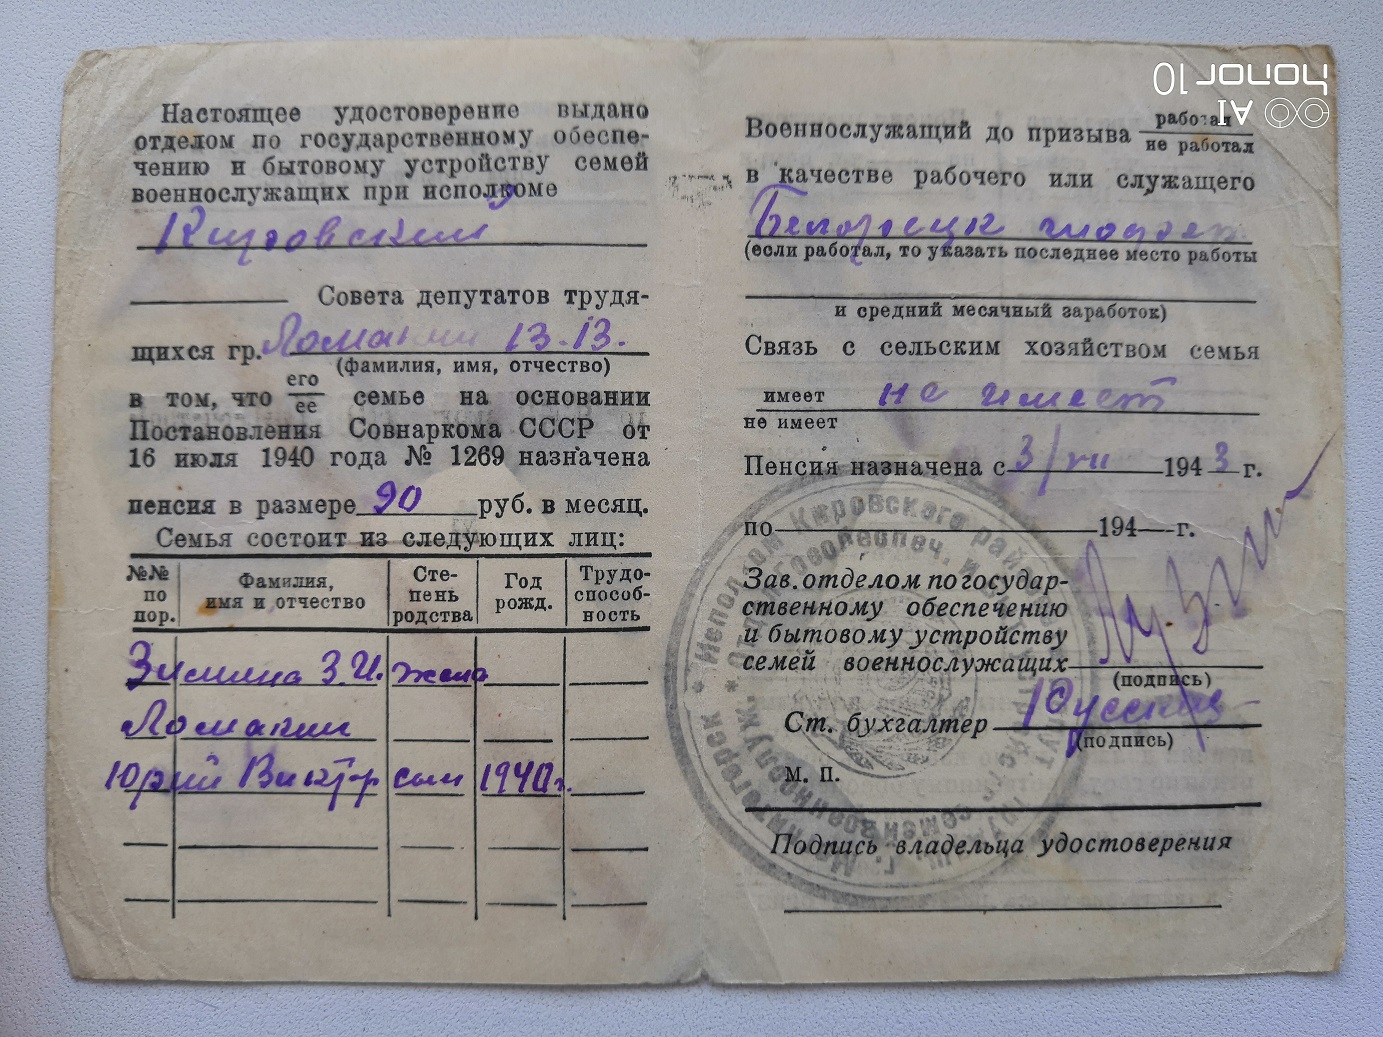 Настоящее удостоверение выдано
отделом по государственному обеспе-
чению и бытовому устройству семей
военнослужащих при исполкоме
Кировский
Совета депутатов трудя-
щихся гр. Ломакин В.В.
(фамилия, имя, отчество)
в том, что его
ее семье на основании
Постановления Совнаркома СССР от
16 июля 1940 года № 1269 назначена
пенсия в размере 90 руб. в месяц.
Семья состоит из следующих лиц:
№№ по пор. Фамилия, имя и отчество Сте-пень родства Год рожд. Трудо-способ-ность
Зимина З.И. жена
Ломакин
Юрий Виктор сын 1940г.
Военнослужащий до призыва работал
не работал
в качестве рабочего или служащего
Белорецк
(если работал, то указать последнее место работы
и средний месячный заработок)
Связь с сельским хозяйством семья
имеет не имеет
не имеет
Пенсия назначена с 3/VII 1943 г.
по 194 г.
Зав. отделом по государ-
ственному обеспечению
и бытовому устройству
семей военнослужащих
(подпись)
Ст. бухгалтер
(подпись)
М. П.
Подпись владельца удостоверения
г. Магнитогорск * Исполком Кировского рай
honor 10
AI